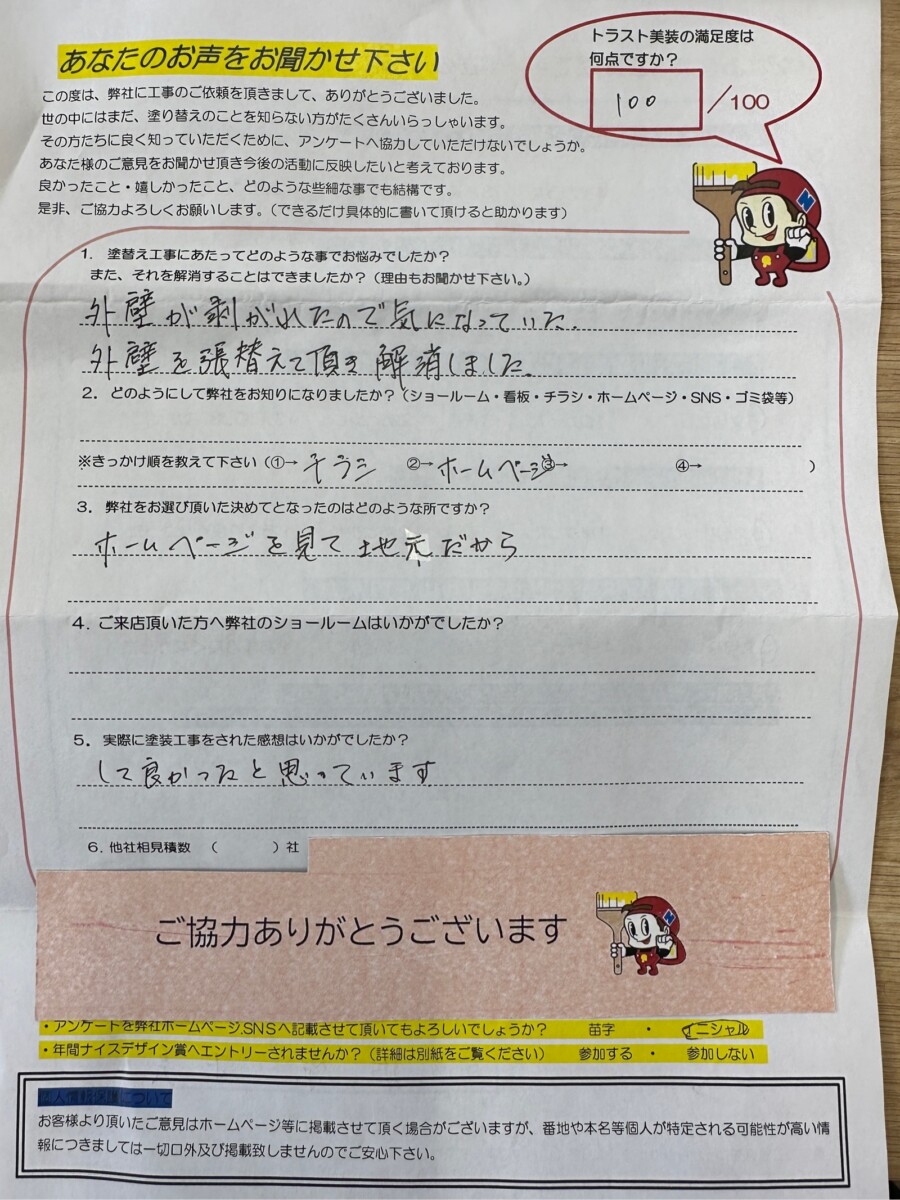 あなたのお声をお聞かせ下さい
トラスト美装の満足度は
何点ですか？
100／100
この度は、弊社に工事のご依頼を頂きまして、ありがとうございました。
世の中にはまだ、塗り替えのことを知らない方がたくさんいらっしゃいます。
その方たちに良く知っていただくために、アンケートへ協力していただけないでしょうか。
あなた様のご意見をお聞かせ頂き今後の活動に反映したいと考えております。
良かったこと・嬉しかったこと、どのような些細な事でも結構です。
是非、ご協力よろしくお願いします。（できるだけ具体的に書いて頂けると助かります）
N
1. 塗替え工事にあたってどのような事でお悩みでしたか？
また、それを解消することはできましたか？（理由もお聞かせ下さい。）
外壁が剥がれたので気になっていた。
外壁を張替えて頂き解消しました。
2. どのようにして弊社をお知りになりましたか？（ショールーム・看板・チラシ・ホームページ・SNS・ゴミ袋等）
※きっかけ順を教えて下さい（①→チラシ ②→ホームページ③→ ④→ ）
3. 弊社をお選び頂いた決めてとなったのはどのような所ですか？
ホームページを見て地元だから
4. ご来店頂いた方へ弊社のショールームはいかがでしたか？
5. 実際に塗装工事をされた感想はいかがでしたか？
して良かったと思っています
6. 他社相見積数 （ ）社
ご協力ありがとうございます
N
・アンケートを弊社ホームページ,SNSへ記載させて頂いてもよろしいでしょうか？ 苗字 ・ イニシャル
・年間ナイスデザイン賞へエントリーされませんか？（詳細は別紙をご覧ください） 参加する ・ 参加しない
個人情報保護について
お客様より頂いたご意見はホームページ等に掲載させて頂く場合がございますが、番地や本名等個人が特定される可能性が高い情
報につきましては一切口外及び掲載致しませんのでご安心下さい。